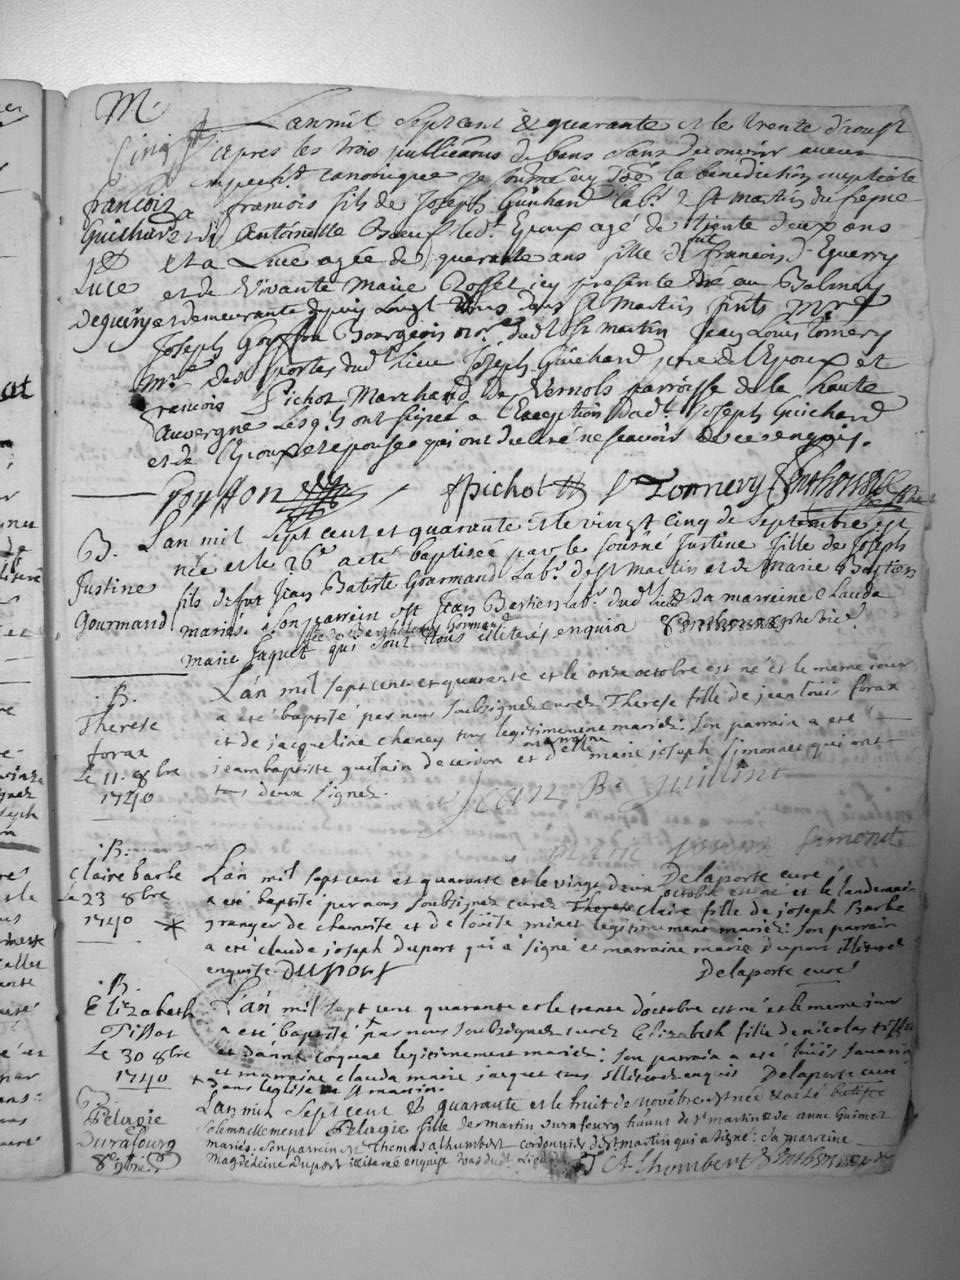 M.
L'an mil sept cent & quarante et le trente d'aoust
apres les trois publications de bans sans decouvrir aucun
empech.t canonique je soussigné ay donné la bénédiction nuptiale
françois
Guichard
Luce
Deguerry
a françois fils de Joseph Guichard lab.r de St martin du fresne
et d'Antoinette agé de trente deux ans
et a Luce agée de quarante ans fille de fut françois D'Eguerry
et de Vivante Marie Rosset icy presente de au Balmey
et demeurante depuis long tems dans St Martin prnts
Joseph Goyffon Bourgeois dud. St martin Jean Louis Tornery
M.e des postes dud. lieu Joseph Guichard pere de l'Epoux et
francois Pichot Marchand de Vernols parroisse de la haute
Auvergne Lesq.ls ont signé a l'Exception dud.t Joseph Guichard
et de l'Epoux et epouse qui ont declaré ne sçavoir de ce enquis.
Goyffon fpichot Tornery
B.
Justine
Gourmand
L'an mil sept cent et quarante et le vingt cinq de septembre est
née et le 26e a eté baptisée par le sousné Justine fille de Joseph
fils de fut Jean Batiste Gourmand Lab.r de St Martin et de Marie
mariés. son parrein est Jean lab.r dud. lieu & sa marreine Clauda
marie Jaquet qui sont tous illiterés enquis
B.
Therese
forax
Le 11. 8bre
1740
L'an mil sept cent et quarante et le onze octobre est né et le meme jour
a eté baptisé par nous soubsigné curé Therese fille de jean louis forax
et de jacqueline chaney tous legitimement mariés: son parrain a eté
jeambaptiste guilain de cerdon et marraine delle marie joseph simonet qui ont
tous deux signés.
jean B. guillint
marie simonet
B.
Claire barbe
Le 23 8bre
1740
Delaporte curé
L'an mil sept cent et quarante et le vingt deux octobre est né et le landemain
a eté baptisé par nous soubsigné curé Therese Claire fille de joseph Barbe
granger de et de minet legitimement mariés: son parrain
a eté claude joseph Duport qui a signé et marraine marie Duport illiterée
enquise. DUport Delaporte curé
B.
Elizabeth
Tissot
Le 30 8bre
1740
L'an mil sept cent quarante et le trente d'octobre est né et le meme jour
a eté baptisé par nous soubsigné curé Elizabeth fille de nicolas tissot
et d'anne legitimement mariés: son parrain a eté louis
et marraine clauda marie jacquet tous illiterés enquis Delaporte curé
dans l'eglise de St martin.
B.
Pelagie
Durafourg
8e 9bre
L'an mil sept cent & quarante et le huit de novébre est née & a eté batisée
solemnellement Pelagie fille de Martin Durafourg habitt de St martin & de anne Guinet
mariés. son parrein est Thomas alhumbert cordonnier de St martin qui a signé. sa marreine
Magdeleine Duport illiterée enquise tous dud. lieu T Alhombert